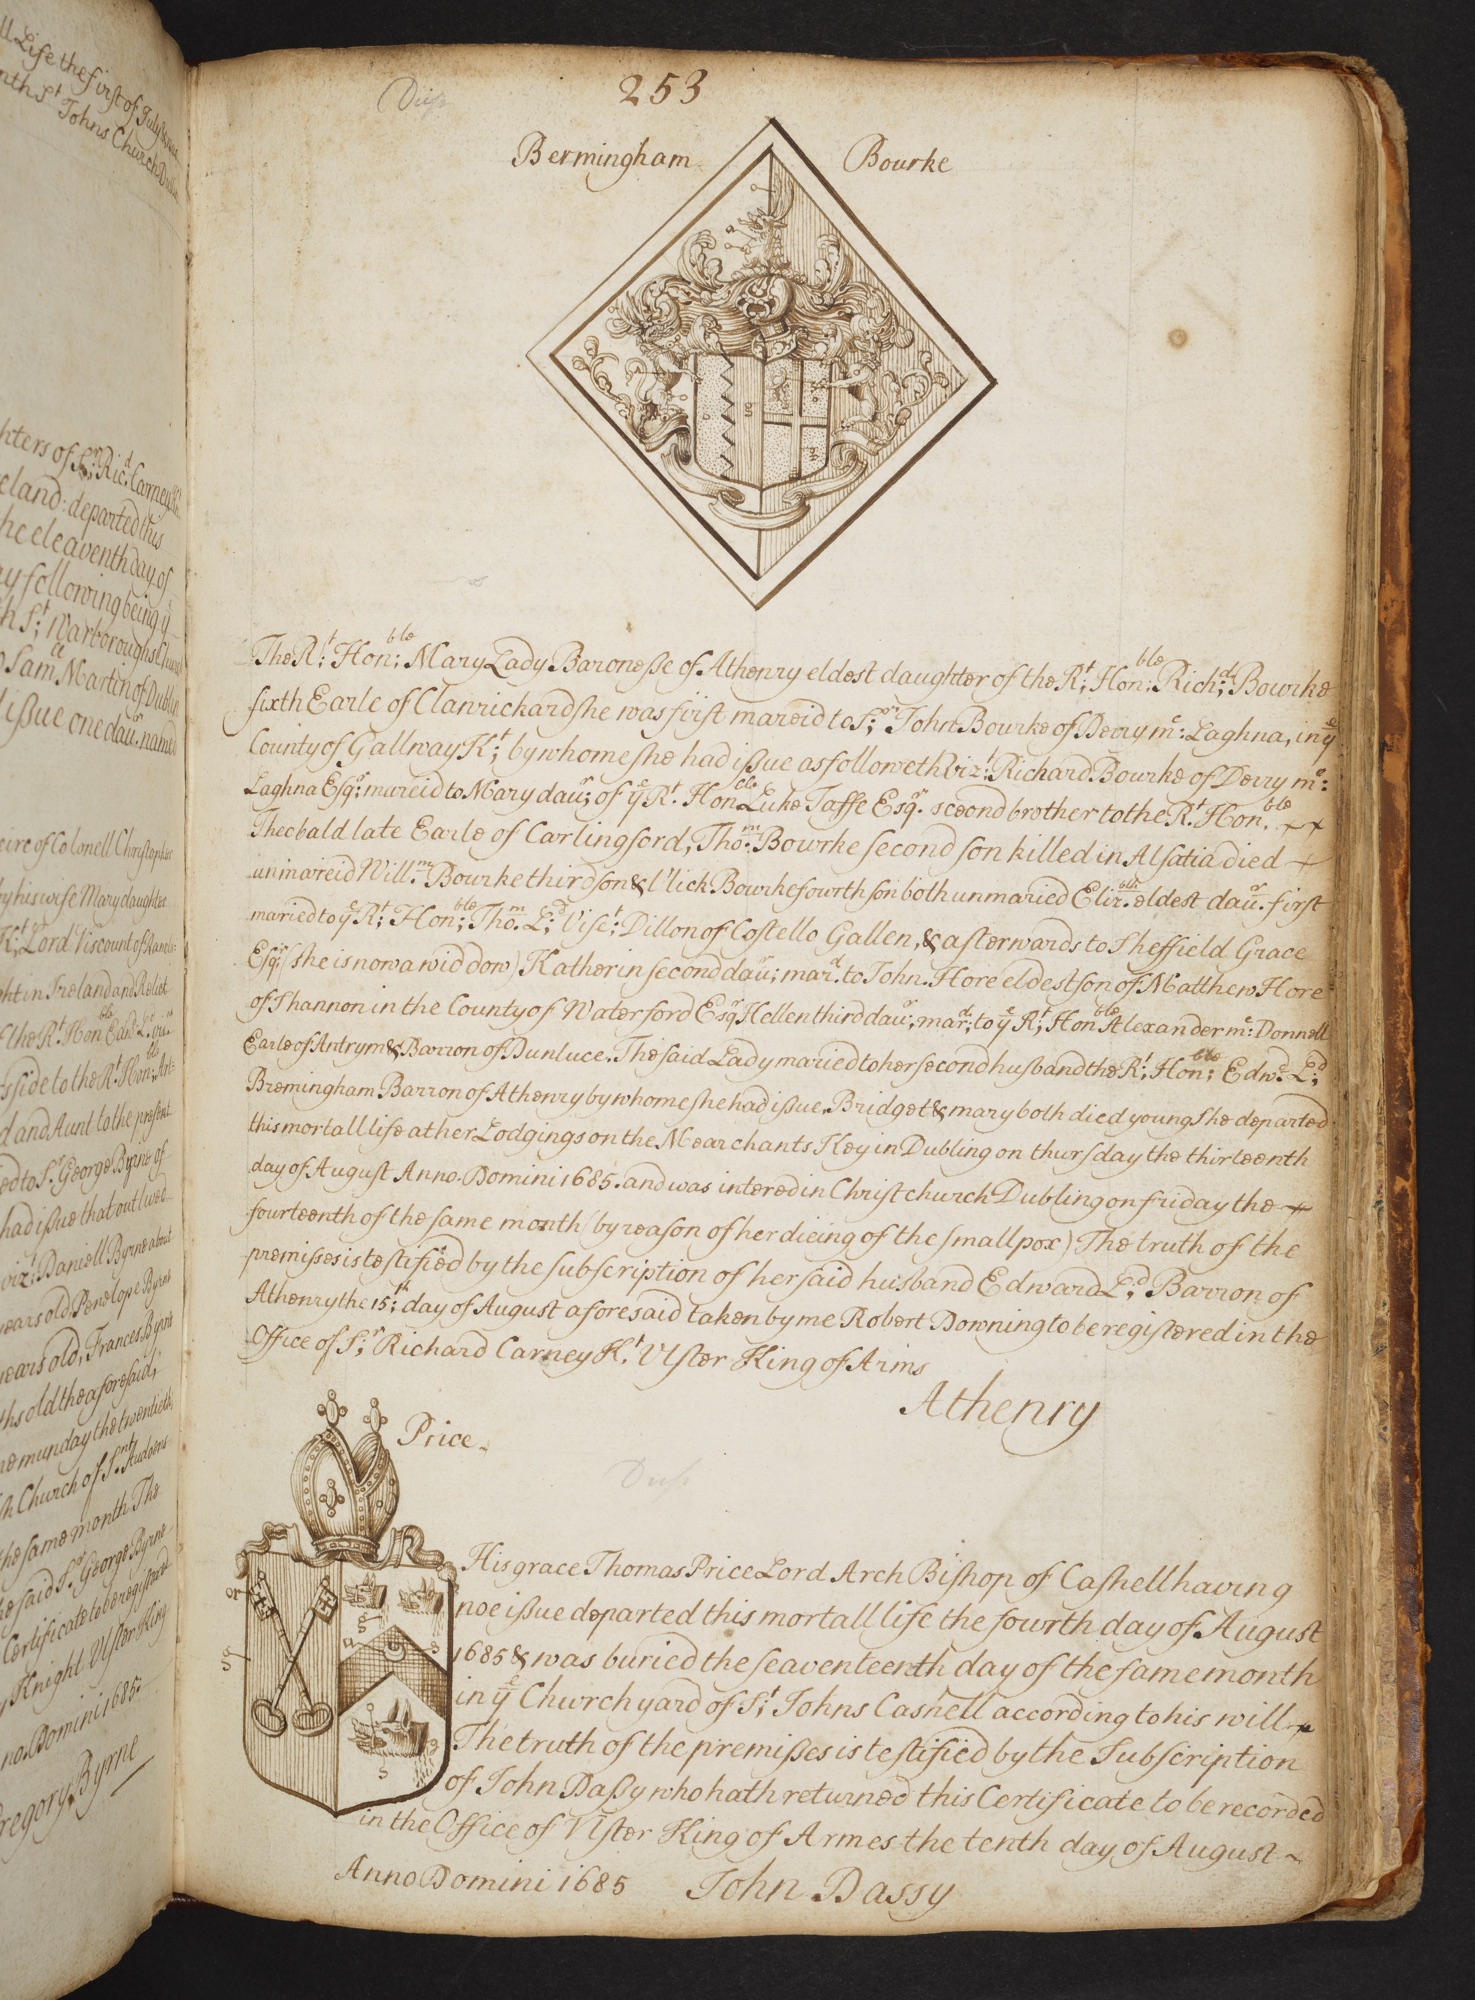 ll Life the first of July
nth St Johns Church
hters of Sr: Ricd. Carney
eland: departed this
he eleaventh day of
ay following being ye
h St; Warboroughs Church
Sam: Martin of Dublin
issue one daur. named
eire of Colonell Christopher
by his wife Mary daughter
Kt Lord Viscount of
ght in Ireland and Relict
f the Rt Honble Edw: Ld:
s side to the Rt Honble: Ant:
d and Aunt to the present
ed to Sr George Byrne of
had issue that outlived
vizt: Daniell Byrne about
years old Penelope Byrne
years old, Frances Byrne
ths old the aforesaid;
ne munday the twentieth
sh Church of Snt. Audoens
the same month The
he said Sr George Byrne
Certificate to be registered
Knight Ulster King
no. Domini 1685:
Gregory Byrne
253
Bermingham Bourke
The Rt; Honble; Mary Lady Baronesse of Athenry eldest daughter of the Rt; Honble; Richd; Bowrke
sixth Earle of Clanrickard she was first mareid to Sr; John Bowrke of Derry mc: Laghna, in ye
County of Gallway Kt; by whome she had issue as followeth vizt; Richard Bowrke of Derry mc:
Laghna Esqr: mareid to Mary daur; of ye Rt. Honble Luke Taffe Esqr. second brother to the Rt. Honble.
Theobald late Earle of Carlingford, Thom. Bowrke second son killed in Alsatia died
unmareid Willm. Bowrke third son & U'lick Bowrke fourth son both unmaried Elizbth. eldest daur. first
maried to ye Rt; Honble; Thom. Ld; Visct; Dillon of Costello Gallen, & afterwards to Sheffield Grace
Esqr; (she is now a widdow) Katherin second daur; mard. to John Hore eldest son of Matthew Hore
of Shannon in the County of Waterford Esqr Hellen third daur; mard; to ye Rt; Honble Alexander mc: Donnell
Earle of Antrym & Barron of Dunluce. The said Lady maried to her second husband the Rt; Honble; Edwd. Ld;
Bremingham Barron of Athenry by whome she had issue Bridget & mary both died young She departed
this mortall life at her Lodgings on the Mearchants Key in Dubling on thursday the thirteenth
day of August Anno Domini 1685. and was intered in Christchurch Dubling on friday the
fourteenth of the same month (by reason of her dieing of the small pox) The truth of the
premisses is testified by the subscription of her said husband Edward Ld; Barron of
Athenry the 15th; day of August aforesaid taken by me Robert Downing to be registered in the
Office of Sr; Richard Carney Kt. Ulster King of Arms
Athenry
Price
His grace Thomas Price Lord Arch Bishop of Cashell having
noe issue departed this mortall life the fourth day of August
1685 & was buried the seaventeenth day of the same month
in ye Churchyard of St; Johns Cashell according to his will
The truth of the premisses is testified by the Subscription
of John Dassy who hath returned this Certificate to be recorded
in the Office of Ulster King of Armes the tenth day of August
Anno Domini 1685 John Dassy